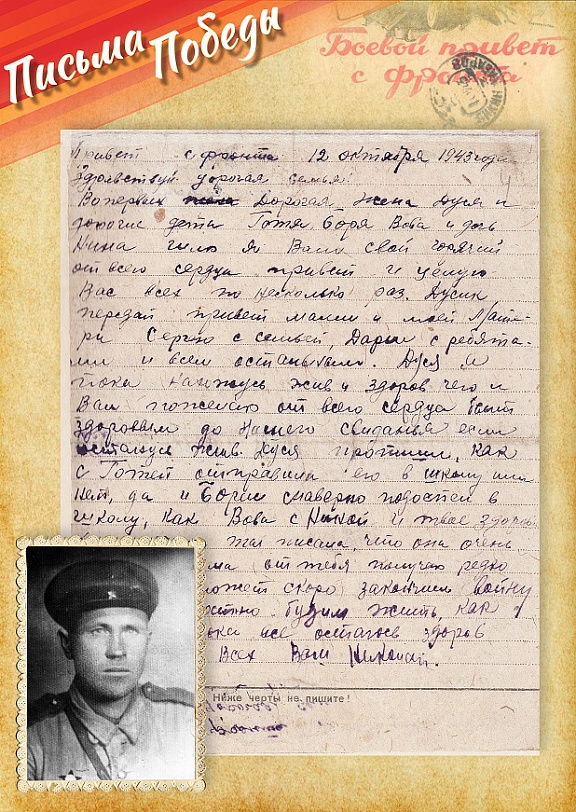 Письма Победы
Боевой привет
с фронта
Привет с фронта 12 октября 1943 года
Здравствуй дорогая семья!
Вопервых Дорогая жена Дуся и
дорогие дети Готя, Боря Вова и дочь
Нина шлю я Вам свой горячий
от всего сердца привет и целую
Вас всех по несколько раз. Дусик,
передай привет мамаши и моей Мате-
ри Сергею с семьей, Дарьи с ребята-
ми и всем остальным. Дуся я
пока нахожусь жив и здоров чего и
Вам пожелаю от всего сердца быть
здоровыми до нашего свиданья если
останусь жив. Дуся пропиши, как
с Готей отправили его в школу или
нет, да и Борис наверно подоспел в
школу, как Вова с Нинкой и твое здоровье
писала, что она очень
от тебя получаю редко
может скоро закончим войну
будем жить, как
все остаюсь здоров
Всех Вам Николай.
Ниже черты не пишите!